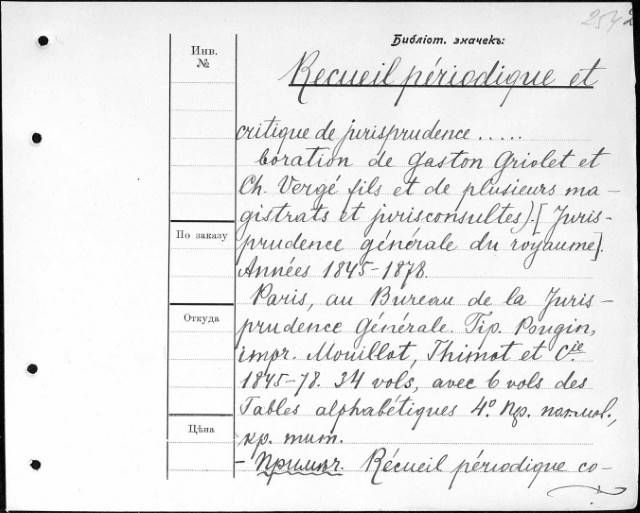 2542
Библіот. значекъ:
Инв.
№
Recueil périodique et
critique de jurisprudence .....
boration de Gaston Griolet et
Ch. Vergé fils et de plusieurs ma-
gistrats et jurisconsultes). [Juris-
По заказу
prudence générale du royaume].
Années 1845-1878.
Paris, au Bureau de la Juris-
Откуда
prudence Générale. Tip. Pougin,
impr. Mouillot, Thimot et Cie
1845-78. 34 vols, avec 6 vols des
Tables alphabétiques 4º. Пр.
Цѣна
кр. тит.
- Примѣч. Récueil périodique co-